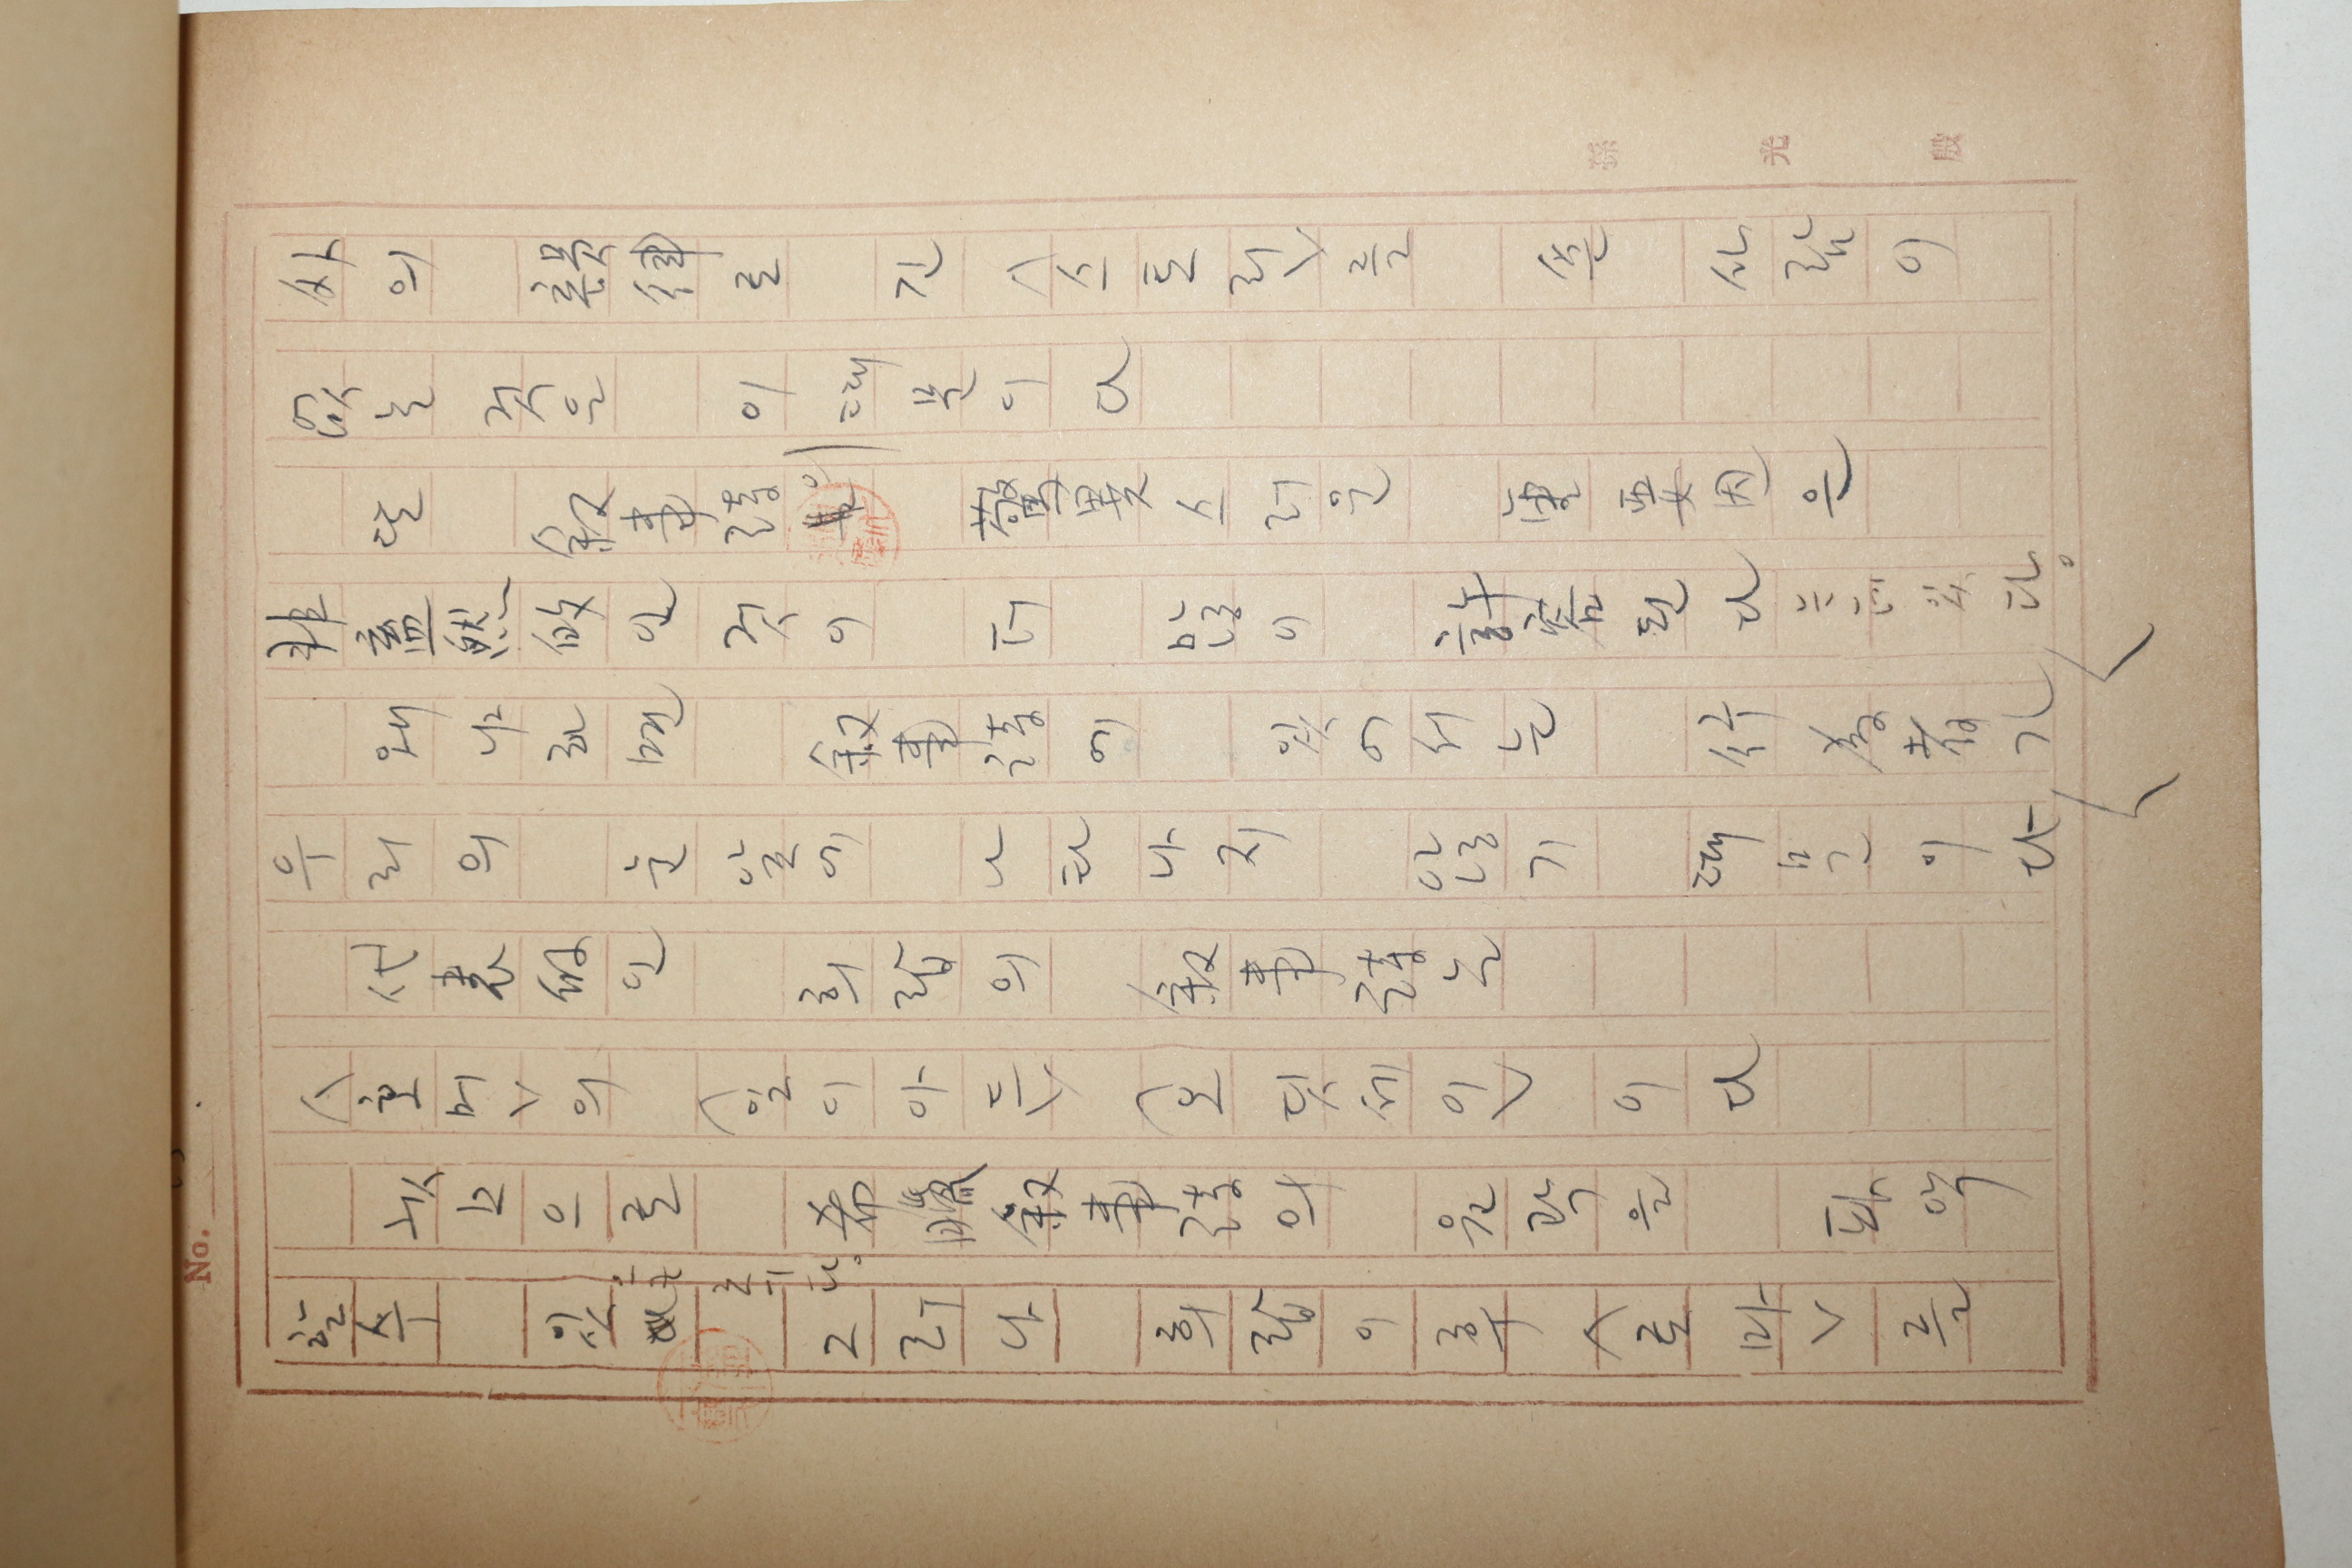 No.
싸의 韻律로 긴 <스토리>를 쓴 사람이
없는 것은 이때문이다
또 敍事詩의 驚異스러운 重要因은
非蓋然的인 것이 더 많이 許容된다는데 있다.
왜냐하면 敍事詩에 있어서는 行爲者가
우리의 눈앞에 나타나지 않기 때문이다
代表的인 희랍의 敍事詩는
<호머>의 <일이아드> <오딧세이>이다
希臘敍事詩의 윤곽을 파악
할수 있 그러나 희랍이후 <로마>를
孫光殷